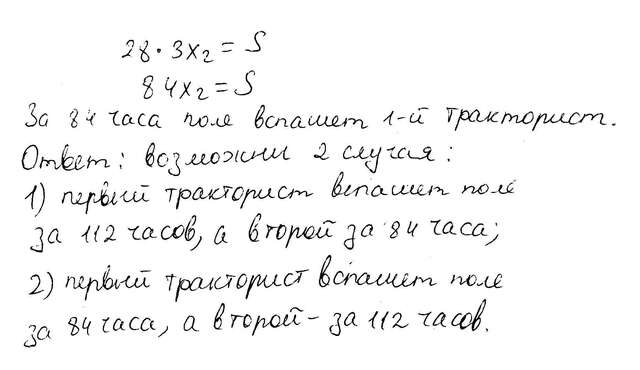 28 · 3x₂ = S
84x₂ = S
За 84 часа поле вспашет 1-й тракторист.
Ответ: возможни 2 случая:
1) первый тракторист вспашет поле
за 112 часов, а второй за 84 часа;
2) первый тракторист вспашет поле
за 84 часа, а второй – за 112 часов.